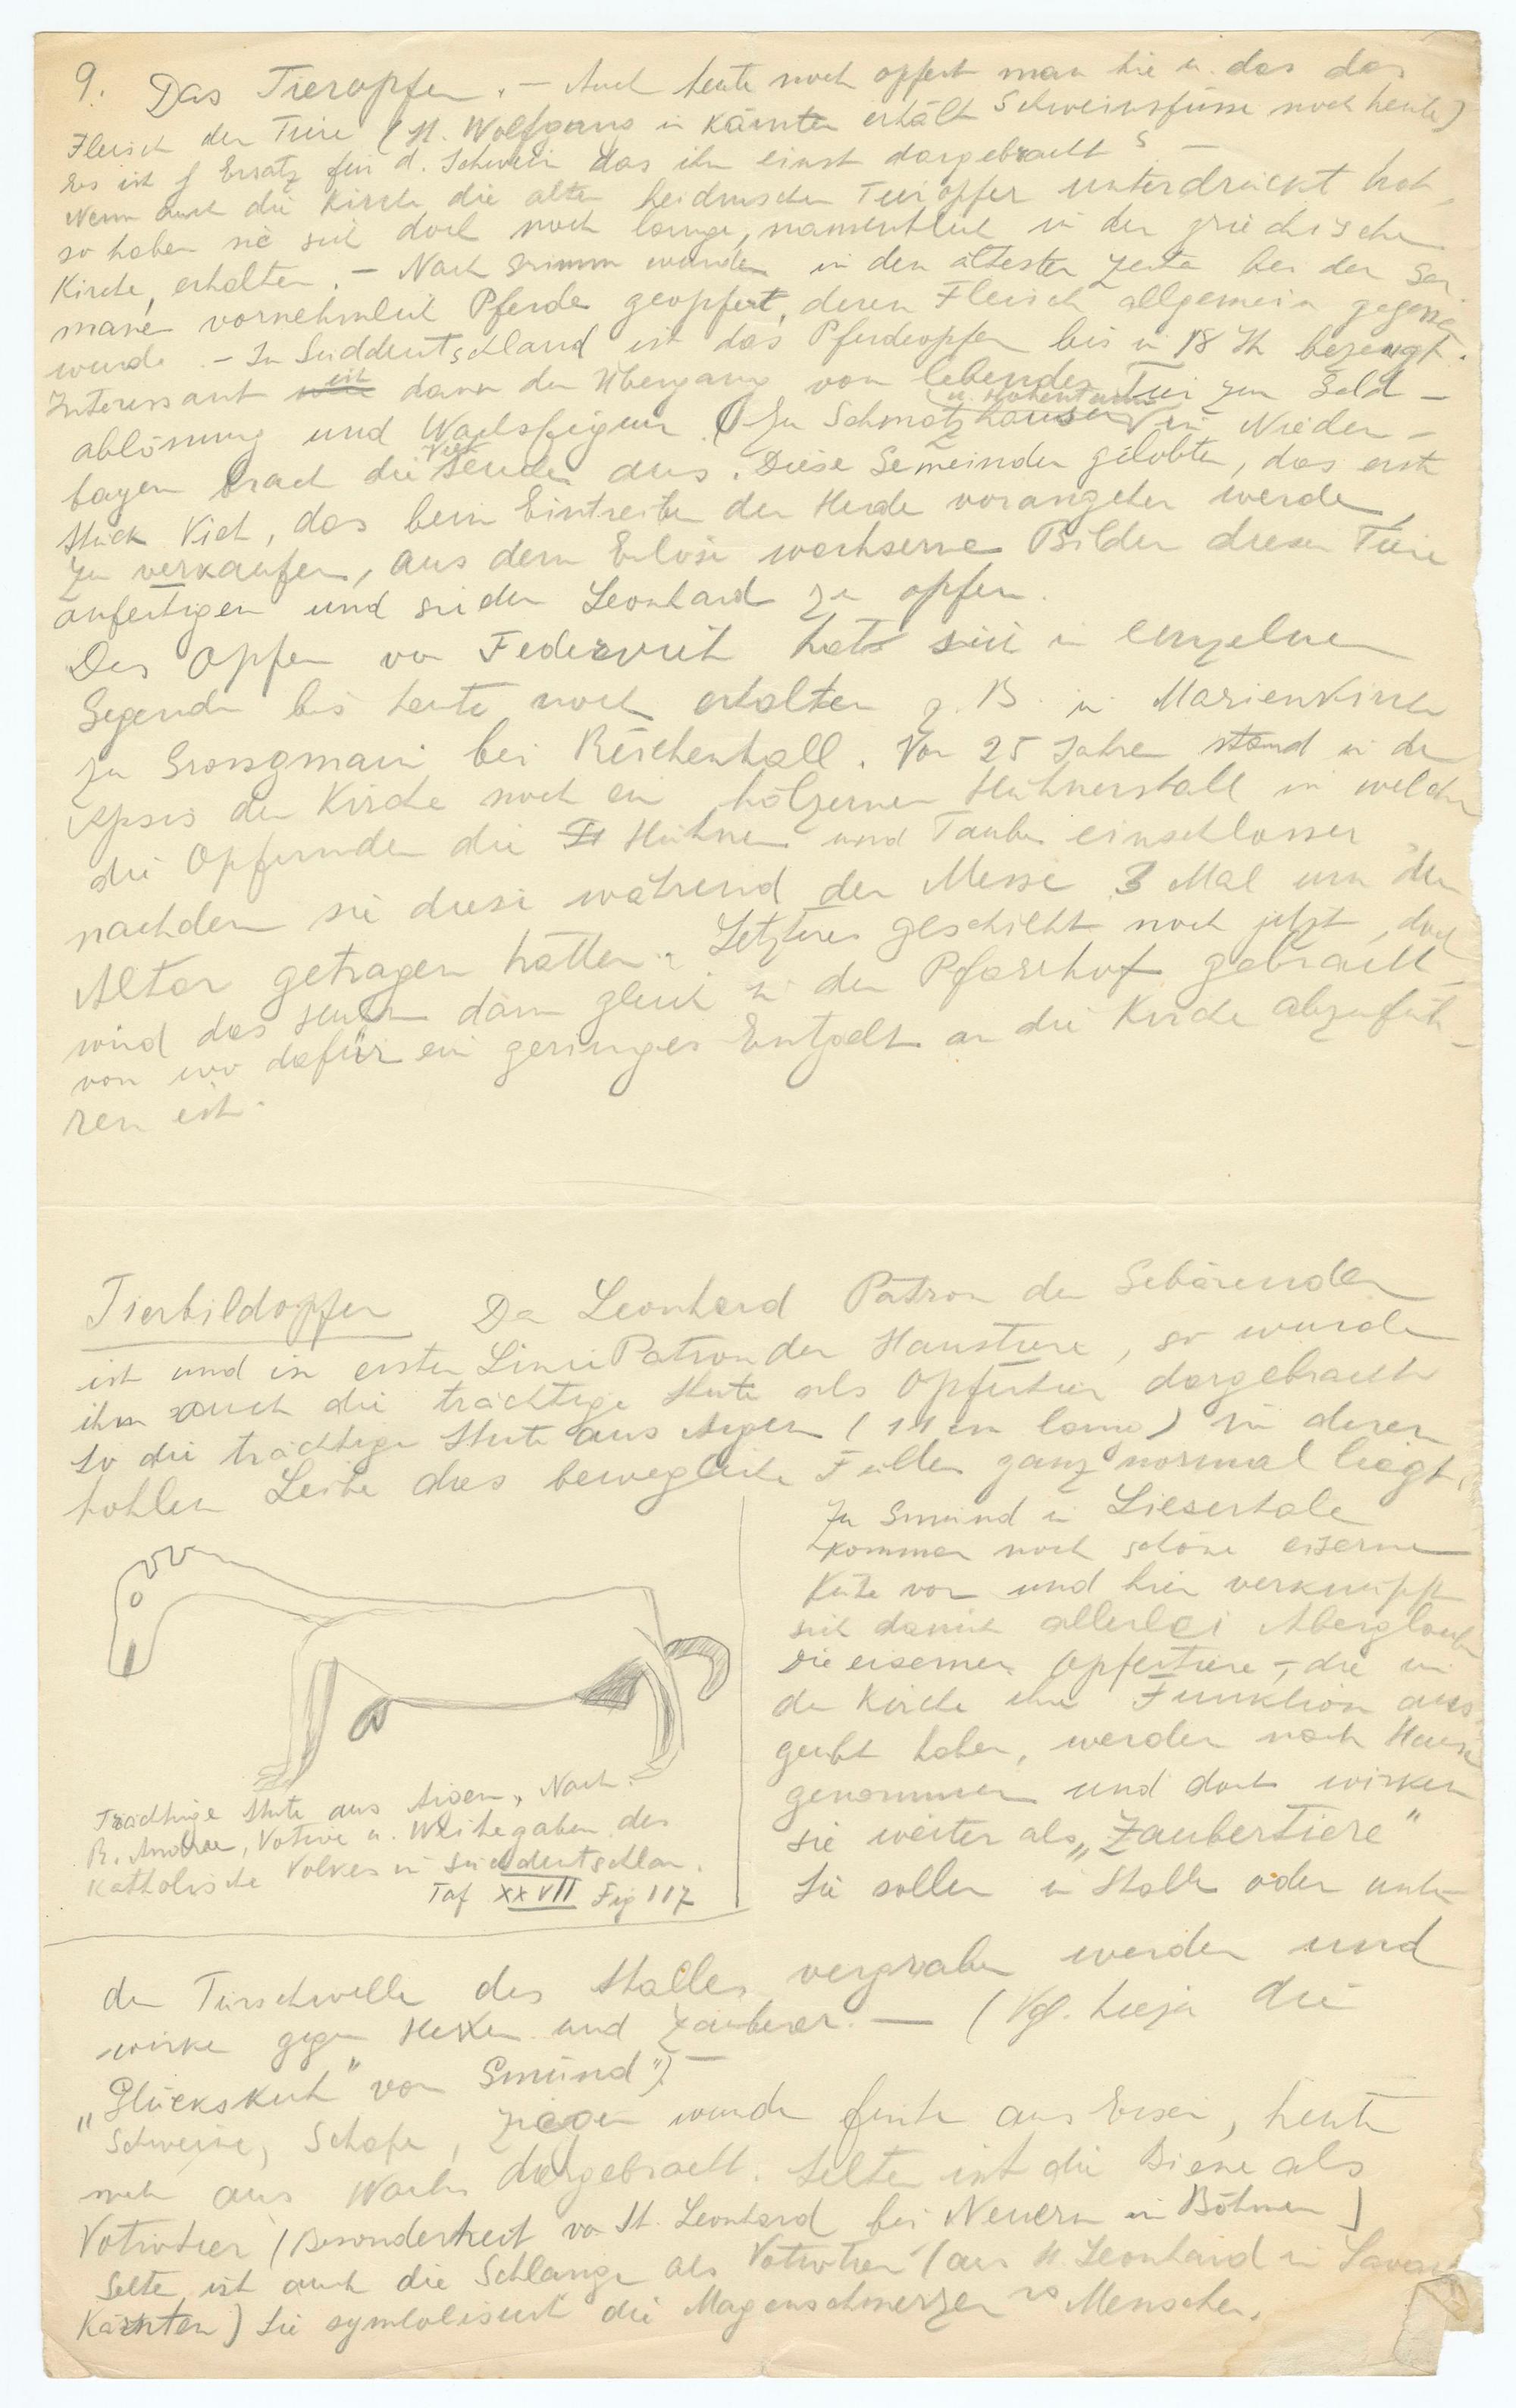 9. Das Tieropfer. – Auch heute noch opfert man hie u. da das
Fleisch der Tiere (St. Wolfgang in Kärnten erhält Schweinsfüsse noch heute)
Es ist Ersatz für d. Schwein das ihm einst dargebracht
Wenn auch die Kirche die alten heidnischen Tieropfer unterdrückt hat,
so haben sie sich doch noch lange, namentlich in der griechischen
Kirche, erhalten. – Nach Grimm wurden in den ältesten Zeiten bei den Ger
manen vornehmlich Pferde geopfert, deren Fleisch allgemein gegessen
wurde. – In Süddeutschland ist das Pferdeopfer bis in 18 Jh bezeugt.
Interessant ist dann der Übergang vom lebenden Tier zur Geld-
u. Hohenthann
ablösung und Wachsfigur. (In Schmatzhausen in Nieder-
bayern brach die Viehseuche aus. Diese Gemeinden gelobten, das erste
Stück Vieh, das beim Eintreiben der Herde vorangehen werde,
zu verkaufen, aus dem Erlöse wächserne Bilder dieser Tiere
anfertigen und sie dem Leonhard zu opfern.
Das Opfern von Federvieh hat sich in einzelnen
Gegenden bis heute noch erhalten z. B. in Marienkirche
zu Grossgmain bei Reichenhall. Vor 25 Jahren stand in der
Apsis der Kirche noch ein hölzerner Hühnerstall in welchen
die Opfernden die Hühner und Tauben einschlossen
nachdem sie diese während der Messe 3 Mal um den
Altar getragen hatten. Letzteres geschieht noch jetzt, doch
wird das Huhn dann gleich in den Pfarrhof gebracht
von wo dafür ein geringes Entgelt an die Kirche abzufüh-
ren ist.
Tierbildopfer Da Leonhard Patron der Gebärenden
ist und in erster Linie Patron der Haustiere, so wurde
ihm auch die trächtige Stute als Opfertier dargebracht
So die trächtige Stute aus Aigen (11 cm lang) in deren
hohlen Leibe das bewegliche Füllen ganz normal liegt.
Zu Gmünd im Liesertale
kommen noch schöne eiserne
Kühe vor und hier verknüpft
sich damit allerlei Aberglaube
Die eisernen Opfertiere, die in
der Kirche ihre Funktion aus-
geübt haben, werden nach Hause
genommen und dort wirken
sie weiter als „Zaubertiere“
Sie sollen in Stalle oder unter
Trächtige Stute aus Aigen, Nach:
R. Andree, Votive u. Weihegaben des
Katholische Volkes in Süddeutschlan.
Taf XXVII Fig 117
der Türschwelle des Stalles vergraben werden und
wirken gegen Hexen und Zauberer. — (Vgl. hiezu die
„Glückskuh“ von Gmünd“)
Schweine, Schafe, Ziegen wurden früher aus Eisen, heute
mehr aus Wachs dargebracht. Selten ist die Biene als
Votivtier (Besonderheit von St. Leonhard bei Neuern in Böhmen)
Selten ist auch die Schlange als Votivtier (aus St. Leonhard in Lavant
Kärnten) Sie symbolisiert die Magenschmerzen Menschen.